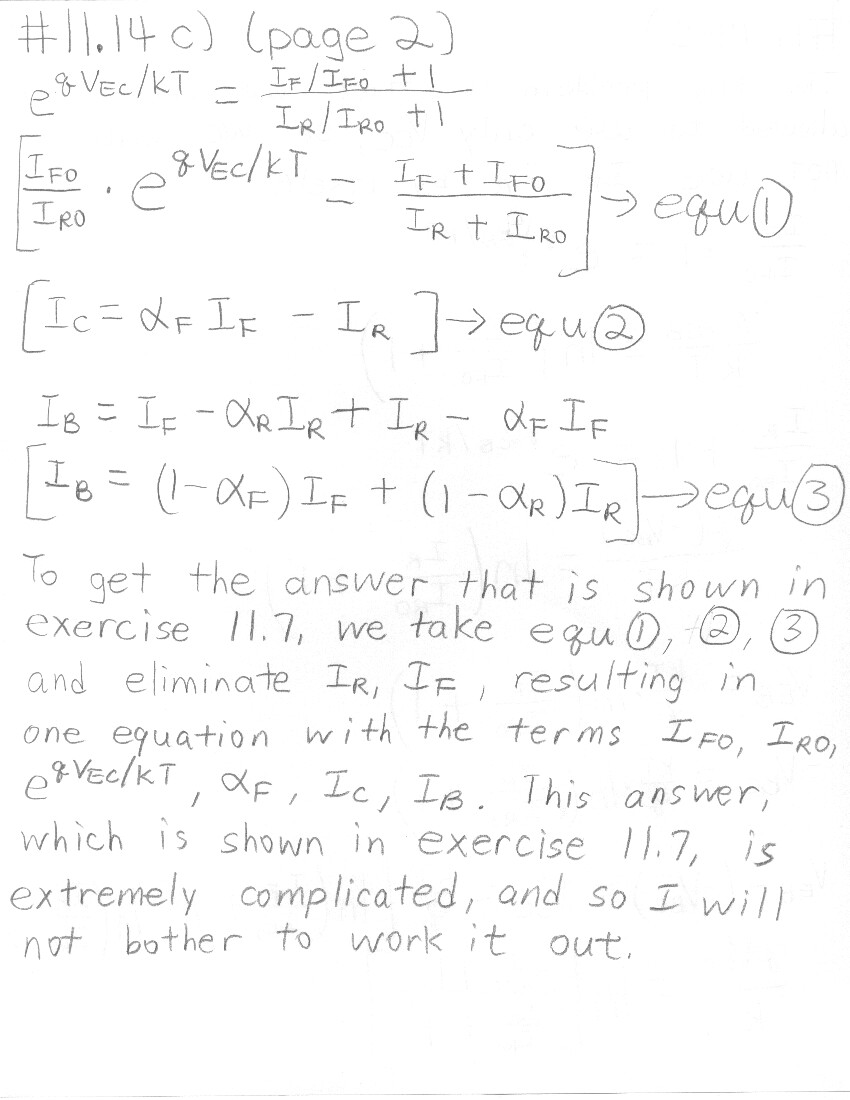 #11.14 c) (page 2)
e^{qV_{EC}/kT} = \frac{I_F/I_{F0} + 1}{I_R/I_{R0} + 1}
[\frac{I_{F0}}{I_{R0}} · e^{qV_{EC}/kT} = \frac{I_F + I_{F0}}{I_R + I_{R0}}] → equ ①
[I_C = α_F I_F - I_R] → equ ②
I_B = I_F - α_R I_R + I_R - α_F I_F
[I_B = (1-α_F) I_F + (1-α_R) I_R] → equ ③
To get the answer that is shown in
exercise 11.7, we take equ ①, ②, ③
and eliminate I_R, I_F, resulting in
one equation with the terms I_{F0}, I_{R0},
e^{qV_{EC}/kT}, α_F, I_C, I_B. This answer,
which is shown in exercise 11.7, is
extremely complicated, and so I will
not bother to work it out.